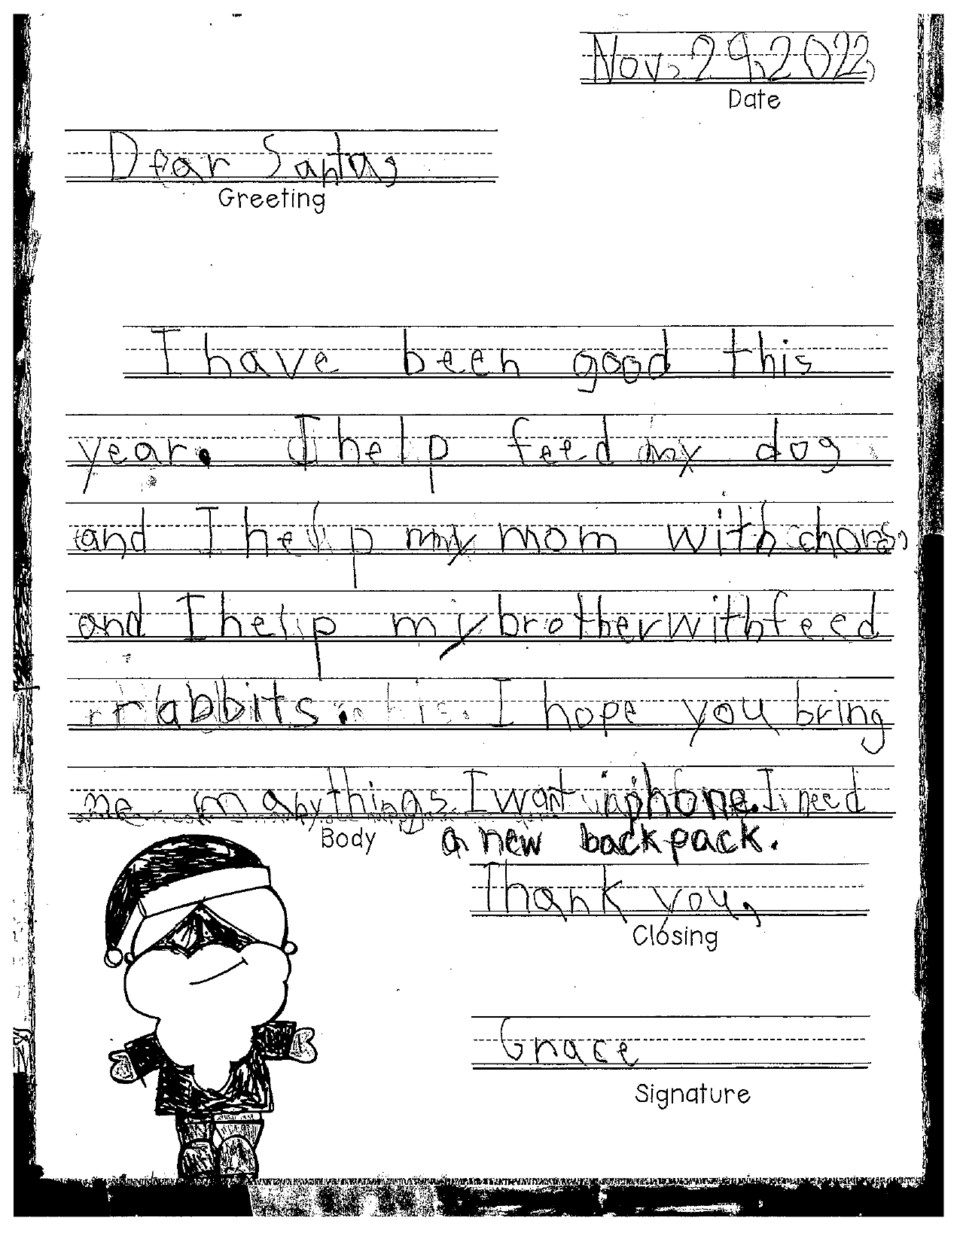 Nov. 29, 2022
Date
Dear Santa,
Greeting
I have been good this
year. I help feed my dog
and I help my mom with chors,
and I help my brother with feed
rabbits. I hope you bring
me many things. I want iphone. I need
Body a new backpack.
Thank you,
Closing
Grace
Signature